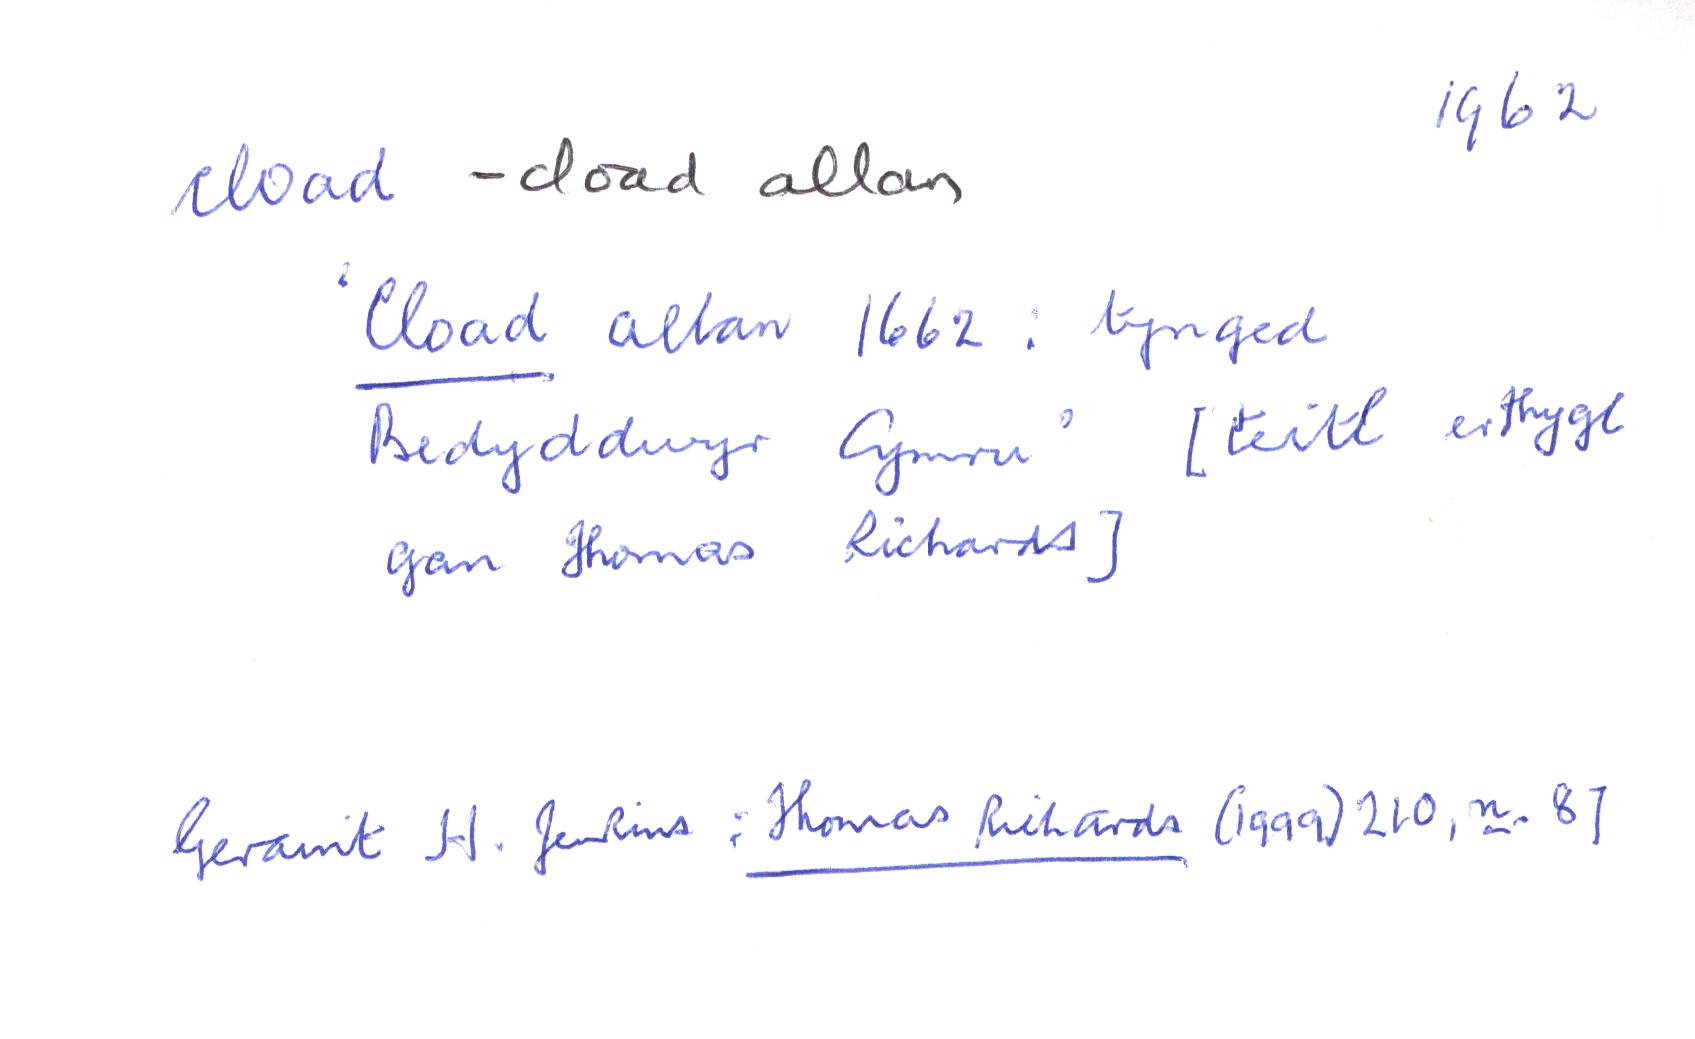 1962
cload - cload allan
'Cload allan 1662 : tynged
Bedyddwyr Cymru' [teitl erthygl
gan Thomas Richards]
Geraint H. Jenkins : Thomas Richards (1999) 210, n. 87